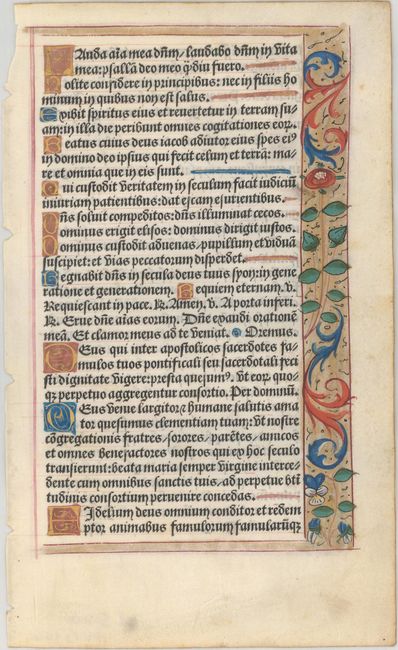 Lauda aīa mea dn̄m / laudabo dn̄m in vita
mea: psallā deo meo q̄diu fuero.
Nolite confidere in principibus: nec in filiis ho
minum in quibus non est salus.
Exibit spiritus eius et reuertetur in terram su-
am: in illa die peribunt omnes cogitationes eoꝝ.
Beatus cuius deus iacob adiutor eius spes eiꝰ
in domino deo ipsius qui fecit celum et terrā: ma
re et omnia que in eis sunt.
Qui custodit veritatem in seculum facit iudiciū
iniuriam patientibus: dat escam esurientibus.
Dn̄s soluit compeditos: dn̄s illuminat cecos.
Dominus erigit elisos: dominus dirigit iustos.
Dominus custodit aduenas / pupillum et viduā
suscipiet: et vias peccatorum disperdet.
Regnabit dn̄s in secula deus tuus syon: in gene
ratione et generationem. Requiem eternam. v.
Requiescant in pace. ℟. Amen. v. A porta inferi.
℟. Erue dn̄e aīas eorum. Dn̄e exaudi orationē
meā. Et clamor meus ad te veniat. Oremus.
Deus qui inter apostolicos sacerdotes fa-
mulos tuos pontificali seu sacerdotali feci
sti dignitate vigere: presta quesumꝰ. vt eoꝝ quo-
q̄ perpetuo aggregentur consortio. Per dominū.
Deus venie largitor et humane salutis ama
tor quesumus clementiam tuam: vt nostre
cōgregationis fratres / sorores / parētes / amicos
et omnes benefactores nostros qui ex hoc seculo
transierunt: beata maria semper virgine interce-
dente cum omnibus sanctis tuis / ad perpetue btī
tudinis consortium peruenire concedas.
Fidelium deus omnium conditor et redem
ptor animabus famulorum famularūq̄